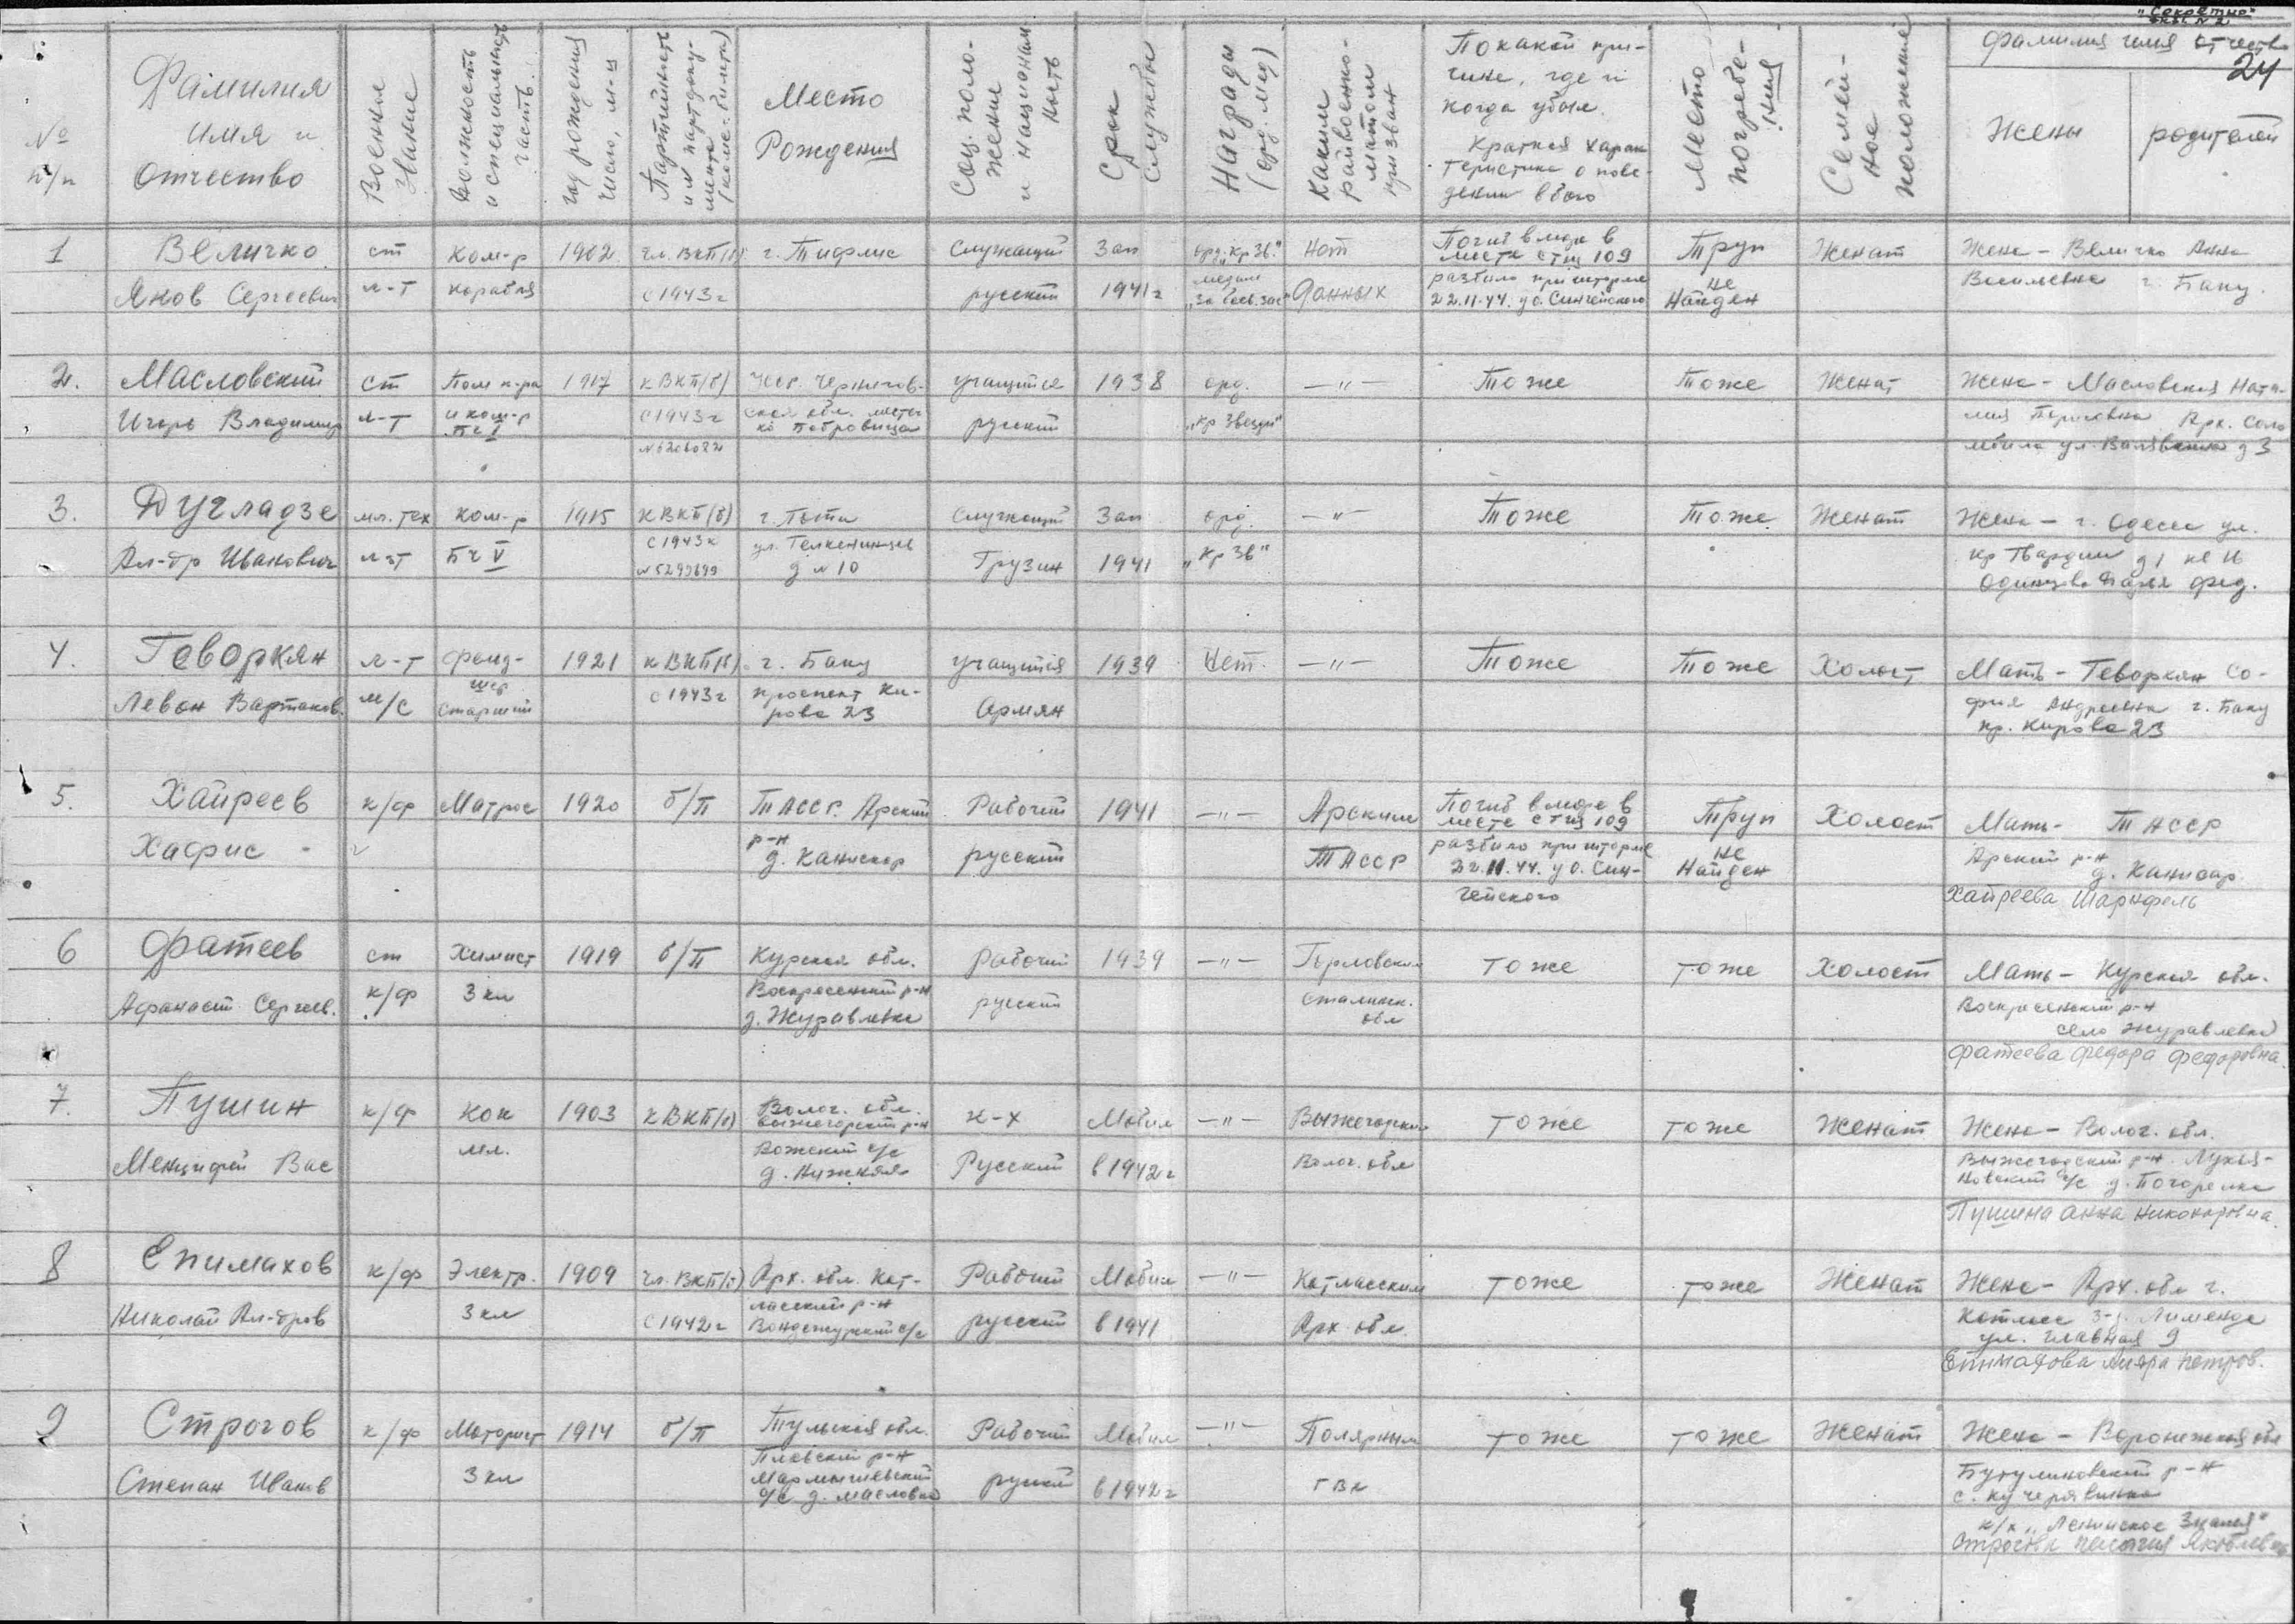 "Секретно"
экз. N 2
24
№ п/п
Фамилия имя и отчество
Военное звание
Должность и специальность
Год рождения число, м-ц
Партийность и № партдокумента (комс. билета)
Место Рождения
Соц. положение и национальность
Срок службы
Награды (орд. мед)
Каким райвоенкоматом призван
По какой причине, где и когда убыл. Краткая характеристика о поведении в бою
Место погребения
Семейное положение
Фамилия имя отчество
Жены
родителей
1
Величко
Яков Сергеевич
ст
л-т
Ком-р
корабля
1902
чл. ВКП(б)
с 1943г
г. Тифлис
Служащий
русский
Зап
1941г
орд. "Кр Зв."
медаль
"За боев. зас"
Нет
данных
Погиб в море в
месте с ТЩ 109
разбило при шторме
22.11.44. у о. Сингейского
Труп
не
Найден
Женат
Жена - Величко Анна
Васильевна г. Баку.
2.
Масловский
Игорь Владимир
ст
л-т
Пом к-ра
и ком-р
БЧ I
1917
к ВКП(б)
с 1943г
УССР. Чернигов-
ская обл. местеч
ко
учащийся
русский
1938
орд.
"Кр Звезды"
-"-
Тоже
Тоже
Женат
Жена - Масловская Ната-
лия Арх. Соло
мбала ул. д 3
3.
Дугладзе
Ал-др Иванович
мл. тех
л-т
Ком-р
БЧ V
1915
к ВКП(б)
с 1943г
N 5293699
г. Поти
ул.
д N 10
Служащий
Грузин
Зап
1941
орд.
"Кр Зв"
-"-
Тоже
Тоже
Женат
Жена - г. Одесса ул.
Кр Гвардии д 1 кв 16
Одинцова Дарья Фед.
4.
Геворкян
Левон Вартанов.
л-т
м/с
фельд-
шер
старший
1921
к ВКП(б)
с 1943г
г. Баку
проспект Ки-
рова 23
учащийся
Армян
1939
Нет.
-"-
Тоже
Тоже
Холост
Мать - Геворкян Со-
фия Андреевна г. Баку
пр. Кирова 23
5.
Хайреев
Хафис -
к/ф
Матрос
1920
б/п
ТАССР. Арский
р-н
д.
Рабочий
русский
1941
-"-
Арским
ТАССР
Погиб в море в
месте с ТЩ 109
разбило при шторме
22.11.44. у о. Син-
гейского
Труп
не
Найден
Холост
Мать - ТАССР
Арский р-н
д.
Хайреева
6
Фатеев
Афанасий Сергеев.
ст
к/ф
Химист
3 кл
1919
б/п
Курская обл.
Воскресенский р-н
д. Журавлевка
Рабочий
русский
1939
-"-
Горловским
Сталинск.
обл
тоже
тоже
Холост
Мать - Курская обл.
Воскресенский р-н
село Журавлевка
Фатеева Федора Федоровна.
7.
Пушин
Менцифей Вас
к/ф
Кок
мл.
1903
к ВКП(б)
Волог. обл.
Вытегорский р-н
с/с
д. Нижняя
к-х
Русский
Мобил
в 1942г
-"-
Вытегорским
Волог. обл
тоже
тоже
Женат
Жена - Волог. обл.
Вытегорский р-н.
с/с д. Погорелка
Пушина Анна Никоноровна.
8
Епимахов
Николай Ал-дров
к/ф
Электр.
3 кл
1909
чл. ВКП(б)
с 1942г
Арх. обл. Кот-
ласский р-н
с/с
Рабочий
русский
Мобил
в 1941
-"-
Котласским
Арх. обл.
тоже
тоже
Женат
Жена - Арх. обл г.
Котлас з-д. Лименда
ул. Главная 9
Епимахова Петров.
9
Строгов
Степан Иванов
к/ф
Моторист
3 кл
1914
б/п
Тульская обл.
р-н
с/с д. Масловка
Рабочий
русский
Мобил
в 1942г
-"-
Полярным
ГВК
тоже
тоже
Женат
Жена - Воронежская обл
Бутурлиновский р-н
с.
к/х "Ленинское Знамя"
Яковлевна